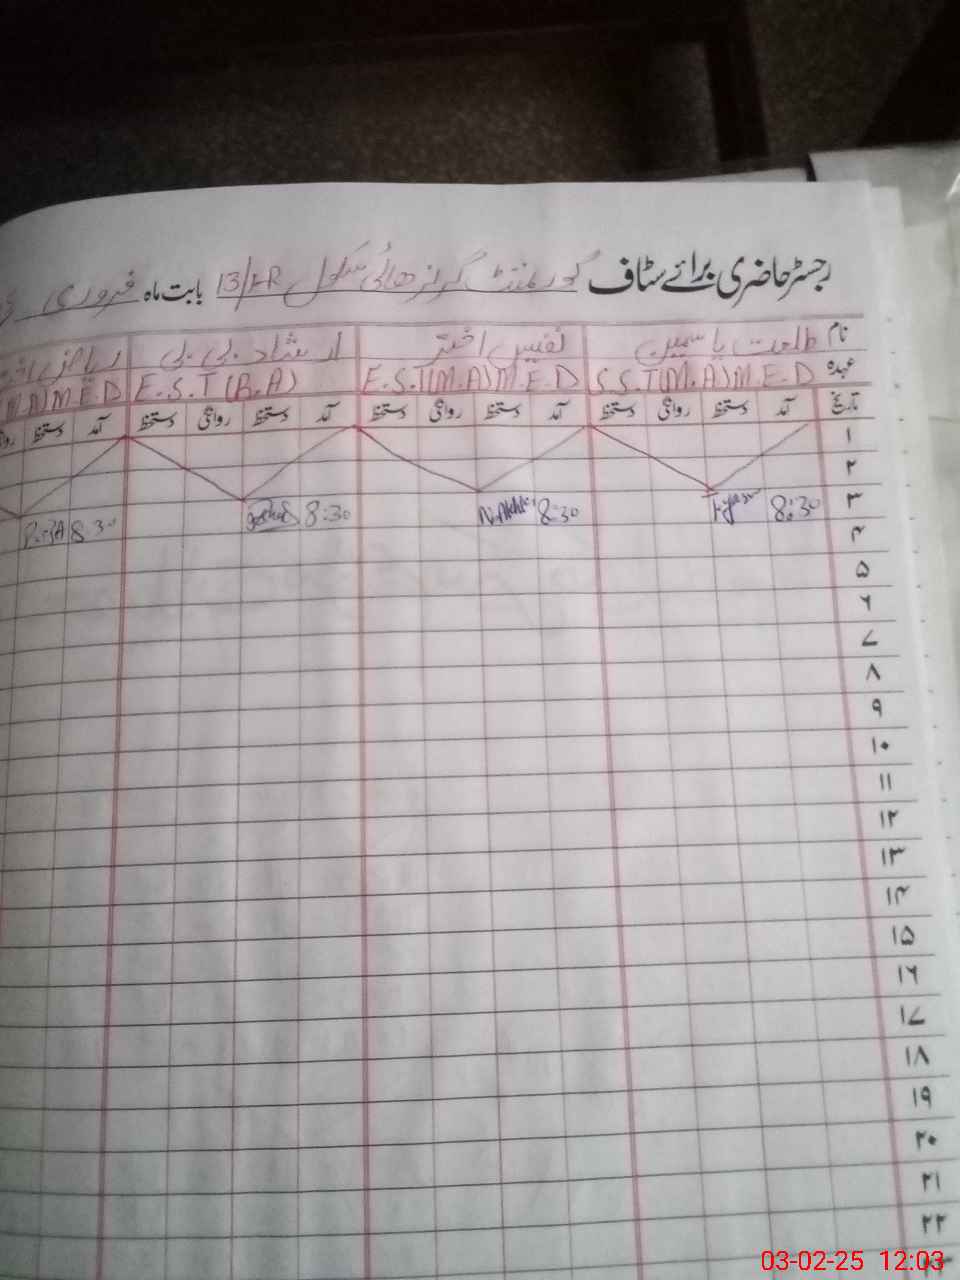 رجسٹر حاضری برائے سٹاف گورنمنٹ گرلز ھائی سکول 13/1-R بابت ماہ فروری
نام طلعت یاسمین نفیس اختر ارشاد بی بی ریاض
عہدہ S.S.T(M.A)M.E.D E.S.T(M.A)M.E.D E.S.T(B.A) M.E.D
تاریخ آمد دستخط روانگی دستخط آمد دستخط روانگی دستخط آمد دستخط روانگی دستخط آمد دستخط
۱
۲
۳ 8:30 8:30 N.Akhtar 8:30 8:30
۴
۵
۶
۷
۸
۹
۱۰
۱۱
۱۲
۱۳
۱۴
۱۵
۱۶
۱۷
۱۸
۱۹
۲۰
۲۱
۲۲
03-02-25 12:03